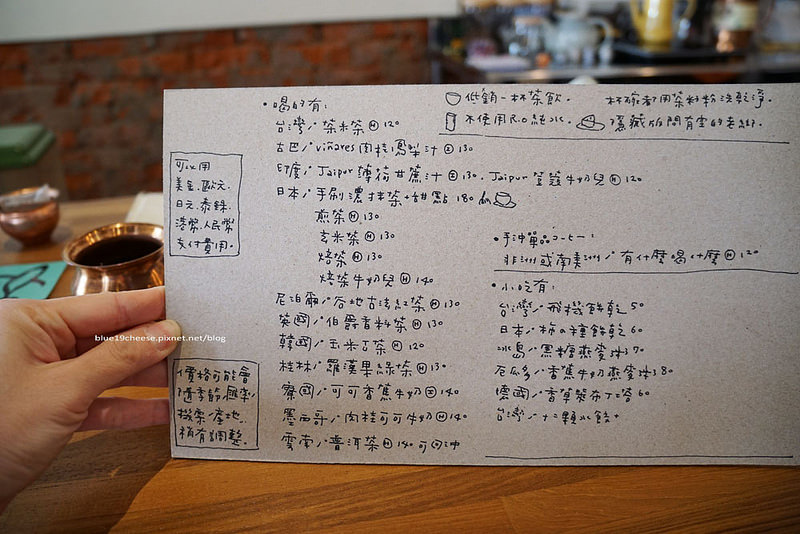 • 喝的有：
台灣／茶米茶 Ⓗ 120
古巴／viñares 肉桂鳳梨汁 Ⓘ 130
印度／Jaipur 薄荷甘蔗汁 Ⓘ 130. Jaipur 荳蔻牛奶兒 Ⓗ 120
日本／手刷濃抹茶+甜點 180
煎茶 Ⓗ 130
玄米茶 Ⓗ 130
焙茶 Ⓗ 130
焙茶牛奶兒 Ⓗ 140
尼泊爾／谷地古法紅茶 Ⓗ 130
英國／伯爵香料茶 Ⓗ 130
韓國／玉米丁茶 Ⓗ 120
桂林／羅漢果綠茶 Ⓗ 130
寮國／可可香蕉牛奶 Ⓘ 140
墨西哥／肉桂可可牛奶 Ⓗ 140
雲南／普洱茶 Ⓗ 140 可回沖
低銷一杯茶飲．
杯碗都用茶籽粉洗乾淨．
不使用R.O純水．
隱藏版問有空的老闆．
可以用
美金．歐元．
日元．泰銖．
港幣．人民幣
支付費用．
• 手沖單品コーヒー：
非洲或南美洲／有什麼喝什麼 Ⓗ 120
• 小吃有：
台灣／飛機餅乾 50
日本／柿の種餅乾 60
冰島／黑糖燕麥球 70
厄瓜多／香蕉牛奶燕麥球 80
德國／香草萊布丁 60
台灣／十二顆水餃
價格可能會
隨季節匯率
機票／產地．
稍有調整．
blue19cheese.pixnet.net/blog